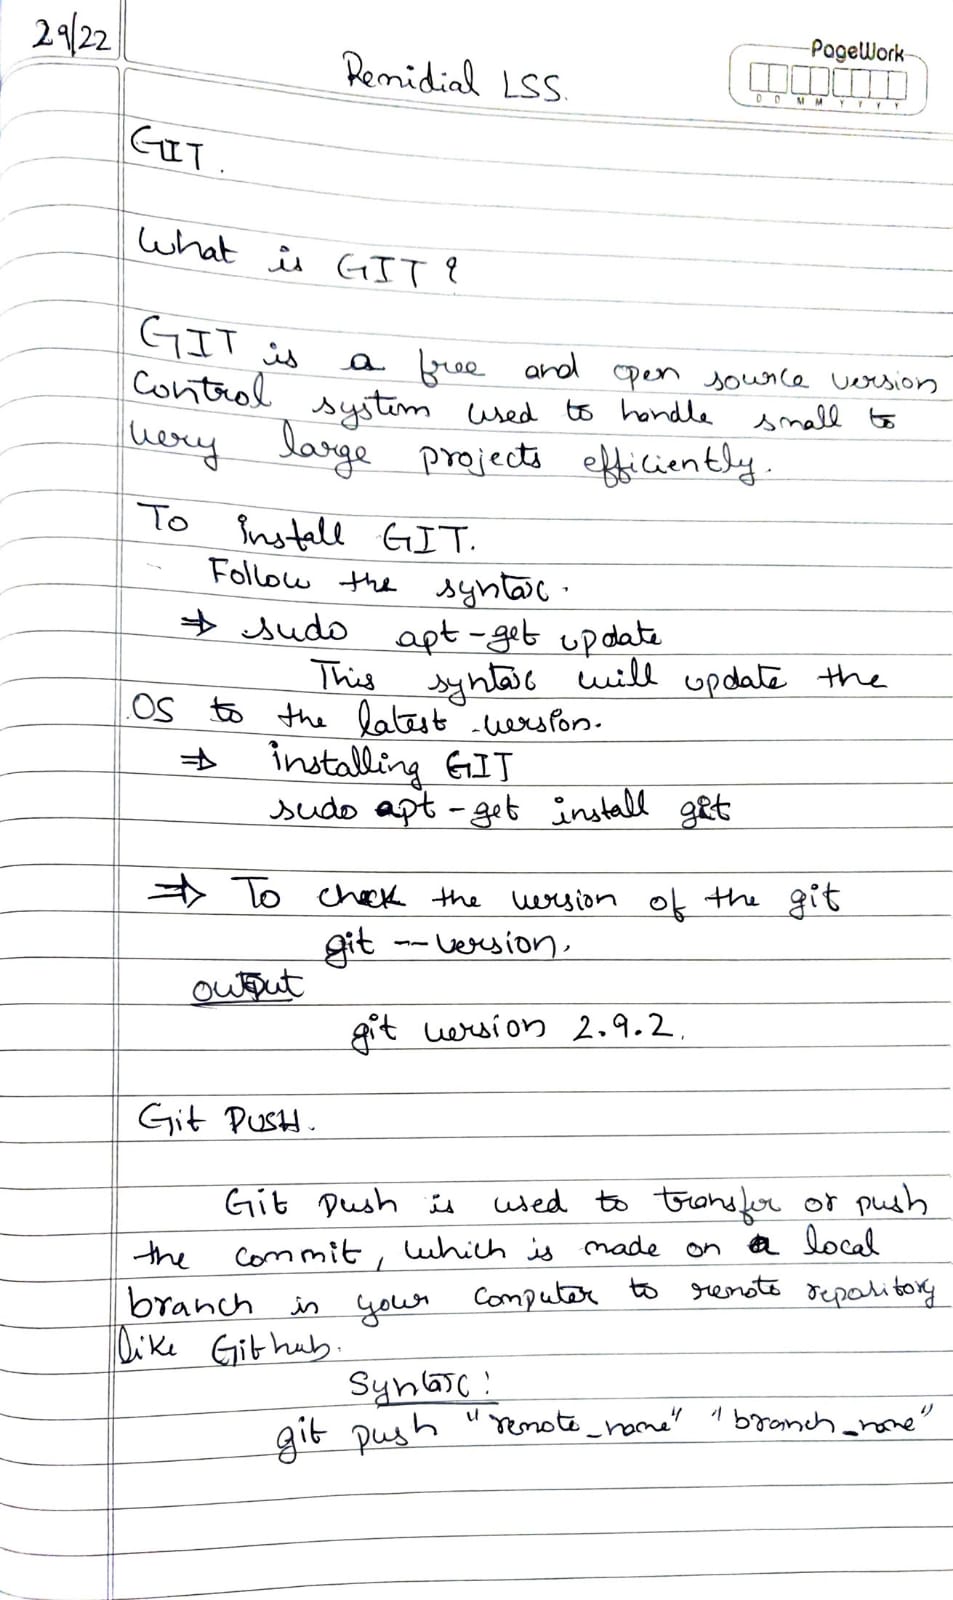 29/22
Remidial LSS.
PageWork
D D M M Y Y Y Y
GIT.
What is GIT?
GIT is a free and open source version
Control system used to handle small to
very large projects efficiently.
To install GIT.
Follow the syntax.
⇒ sudo apt-get update
This syntax will update the
OS to the latest version.
⇒ installing GIT
sudo apt-get install git
⇒ To check the version of the git
git --version.
output
git version 2.9.2.
Git PUSH.
Git Push is used to transfer or push
the commit, which is made on a local
branch in your computer to remote repository
like Github.
Syntax:
git push "remote_name" "branch_name"